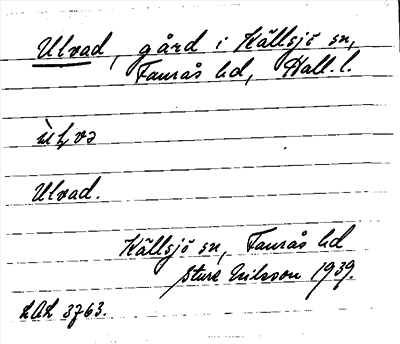 Ulvad, gård i Källsjö sn,
Faurås hd, Hall. l.
Ulvad.
Källsjö sn, Faurås hd
Sture Nilsson 1939.
LAL 3763.